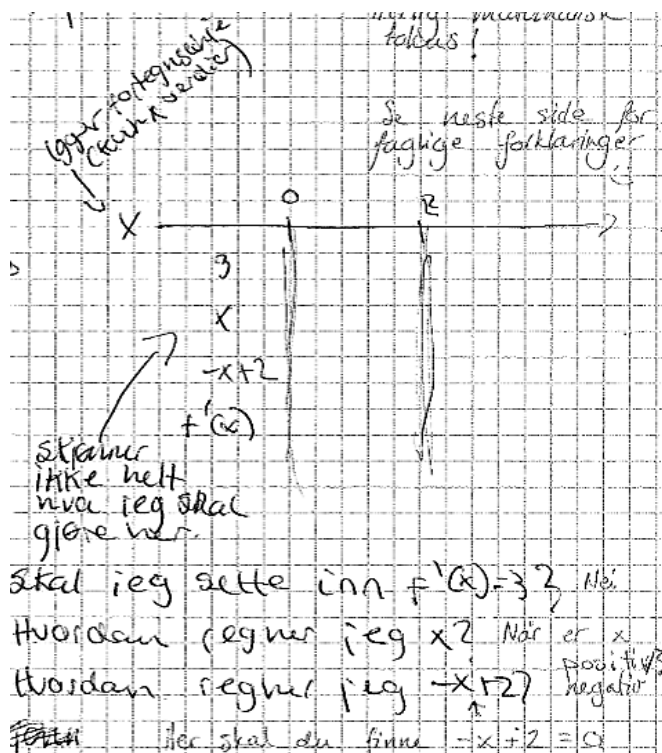 fokus!
lager fortegnslinje
(kun x verdier)
Se neste side for
faglige forklaringer
0 2
X
3
x
-x+2
f'(x)
skjønner
ikke helt
hva jeg skal
gjøre her.
Skal jeg sette inn f'(x)=3? Nei.
Hvordan regner jeg x? Når er x
positiv?
Hvordan regner jeg -x+2? negativ
Her skal du finne -x+2=0